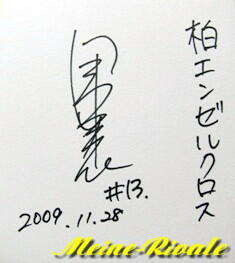 柏エンゼルクロス
#13.
2009.11.28
Meine-Rivale